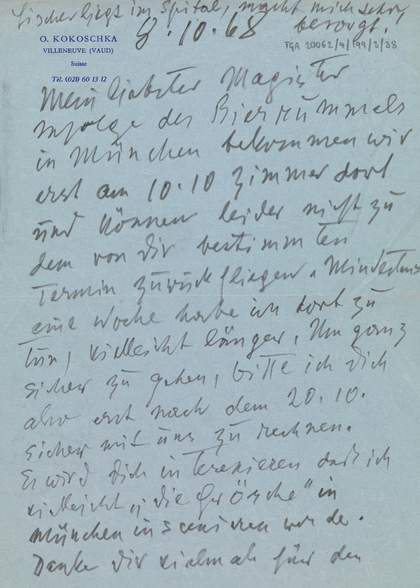 Fischer liegt im Spital, macht mich sehr
besorgt.
8.10.68
O. KOKOSCHKA
VILLENEUVE (VAUD)
Suisse
Tél. (021) 60 13 12
TGA 20062/4/199/2/38
Mein liebster Magister
infolge des Bierrummels
in München bekommen wir
erst am 10.10 Zimmer dort
und können leider nicht zu
dem von dir bestimmten
Termin zurückfliegen. Mindestens
eine Woche habe ich dort zu
tun, vielleicht länger. Um ganz
sicher zu gehen, bitte ich dich
also erst nach dem 20.10.
sicher mit uns zu rechnen.
Es wird dich interessieren daß ich
vielleicht „die Frösche" in
München inscenieren werde.
Danke dir vielmals für den